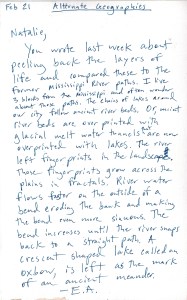 Feb 21 Alternate Geographies
Natalie,
You wrote last week about
peeling back the layers of
life and compared these to the
former Mississippi River paths. I live
blocks from the Mississippi and often wonder
about those paths. The chains of lakes around
our city follow ancient river beds. Or maint
river beds are over printed with
glacial melt water tunnels but are now
overprinted with lakes. The river
left fingerprints in the landscape
Those fingerprints grow across the
plains in fractals. River water
flows faster on the outside of a
bend eroding the bank and making
the bend even more sinuous. The
bend increases until the river snaps
back to a straight path. A
crescent shaped lake called an
oxbow, is left as the mark
of an ancient meander.
E.A.